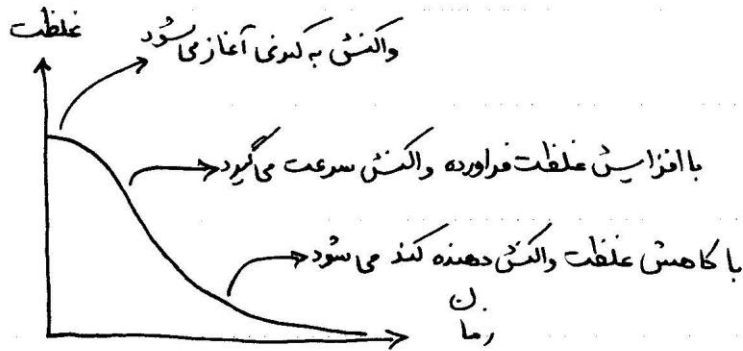 غلظت
واکنش به کندی آغاز می‌شود
با افزایش غلظت فراورده واکنش سرعت می‌گیرد
با کاهش غلظت واکنش دهنده کند می‌شود
زمان